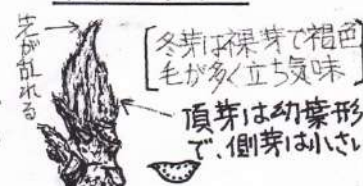 先が乱れる
冬芽は裸芽で褐色
毛が多く立ち気味
頂芽は幼葉形
で、側芽は小さい